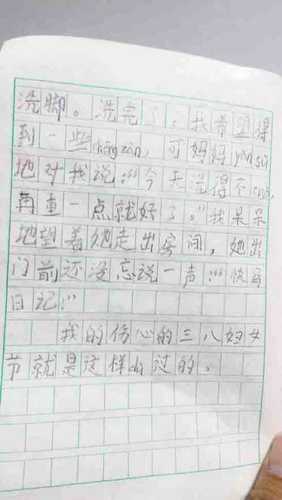 洗脚。洗完了，我希望得
到一些chēng zàn，可妈妈yán sù
地对我说:“今天洗得不cuò,
再重一点就好了。”我呆呆
地望着她走出房间，她出
门前还没忘说一声:“快写
日记!”
我的伤心的三八妇女
节就是这样dù过的。